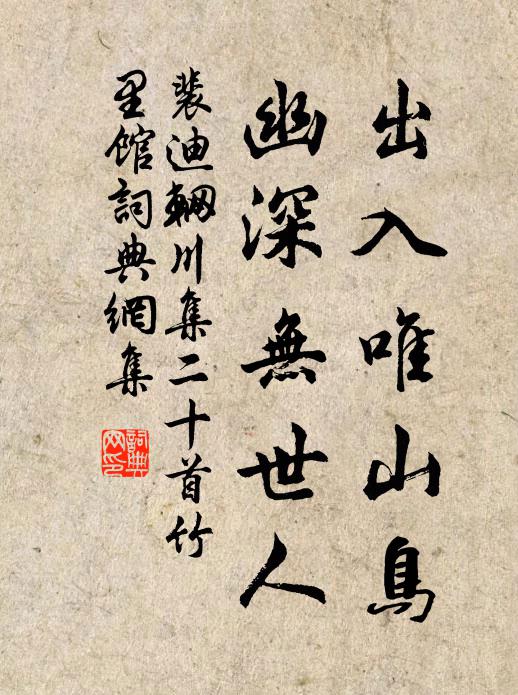 出入唯山鳥
幽深無世人
裴迪輞川集二十首竹
里館詞典網集
詞典
网印